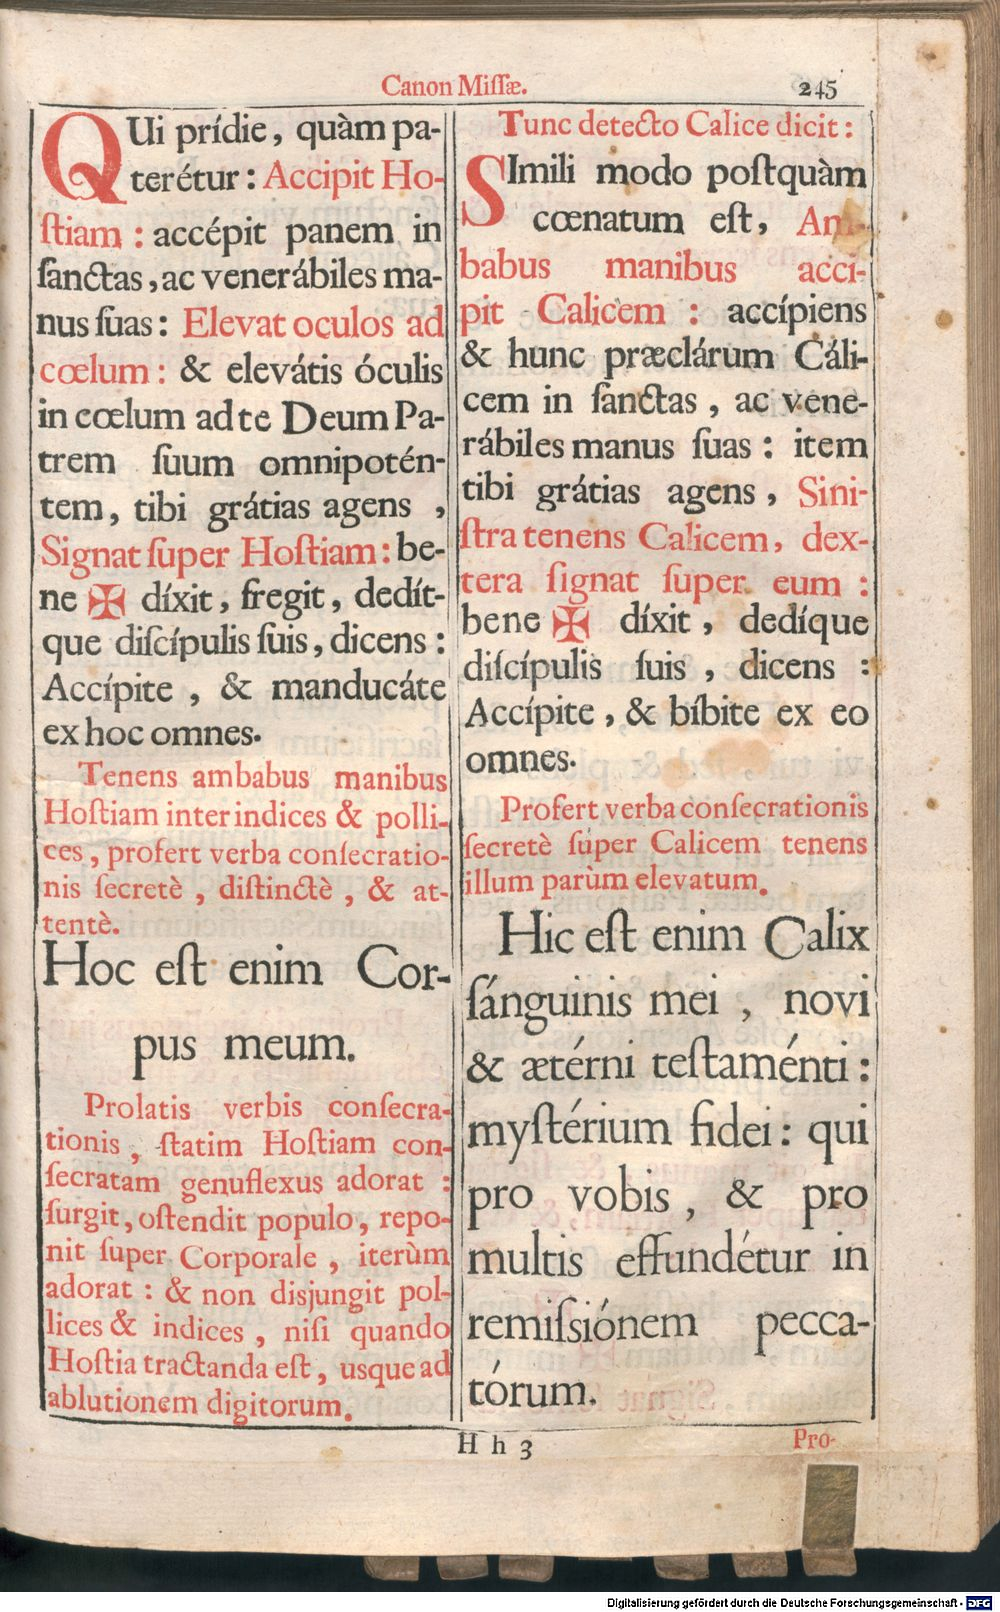 Canon Miſſæ.
245
QUi prídie, quàm pa-
terétur: Accipit Ho-
ſtiam : accépit panem in
ſanctas, ac venerábiles ma-
nus ſuas: Elevat oculos ad
cœlum: & elevátis óculis
in cœlum ad te Deum Pa-
trem ſuum omnipotén-
tem, tibi grátias agens ,
Signat ſuper Hoſtiam: be-
ne ✠ díxit, fregit, dedít-
que diſcípulis ſuis, dicens:
Accípite , & manducáte
ex hoc omnes.
Tenens ambabus manibus
Hoſtiam inter indices & polli-
ces, profert verba conſecratio-
nis ſecretè , diſtinctè , & at-
tentè.
Hoc eſt enim Cor-
pus meum.
Prolatis verbis conſecra-
tionis, ſtatim Hoſtiam con-
ſecratam genuflexus adorat :
ſurgit, oſtendit populo, repo-
nit ſuper Corporale , iterùm
adorat : & non disjungit pol-
lices & indices , niſi quando
Hoſtia tractanda eſt, usque ad
ablutionem digitorum.
Tunc detecto Calice dicit:
SImili modo poſtquàm
cœnatum eſt, Am-
babus manibus acci-
pit Calicem : accípiens
& hunc præclárum Cáli-
cem in ſanctas , ac vene-
rábiles manus ſuas : item
tibi grátias agens , Sini-
ſtra tenens Calicem, dex-
tera ſignat ſuper eum :
bene ✠ díxit , dedíque
diſcípulis ſuis , dicens :
Accípite , & bíbite ex eo
omnes.
Profert verba conſecrationis
ſecretè ſuper Calicem tenens
illum parùm elevatum.
Hic eſt enim Calix
ſánguinis mei , novi
& ætérni teſtaménti :
myſtérium fidei : qui
pro vobis , & pro
multis effundétur in
remiſsiónem pecca-
tórum.
H h 3
Pro-
Digitalisierung gefördert durch die Deutsche Forschungsgemeinschaft - DFG